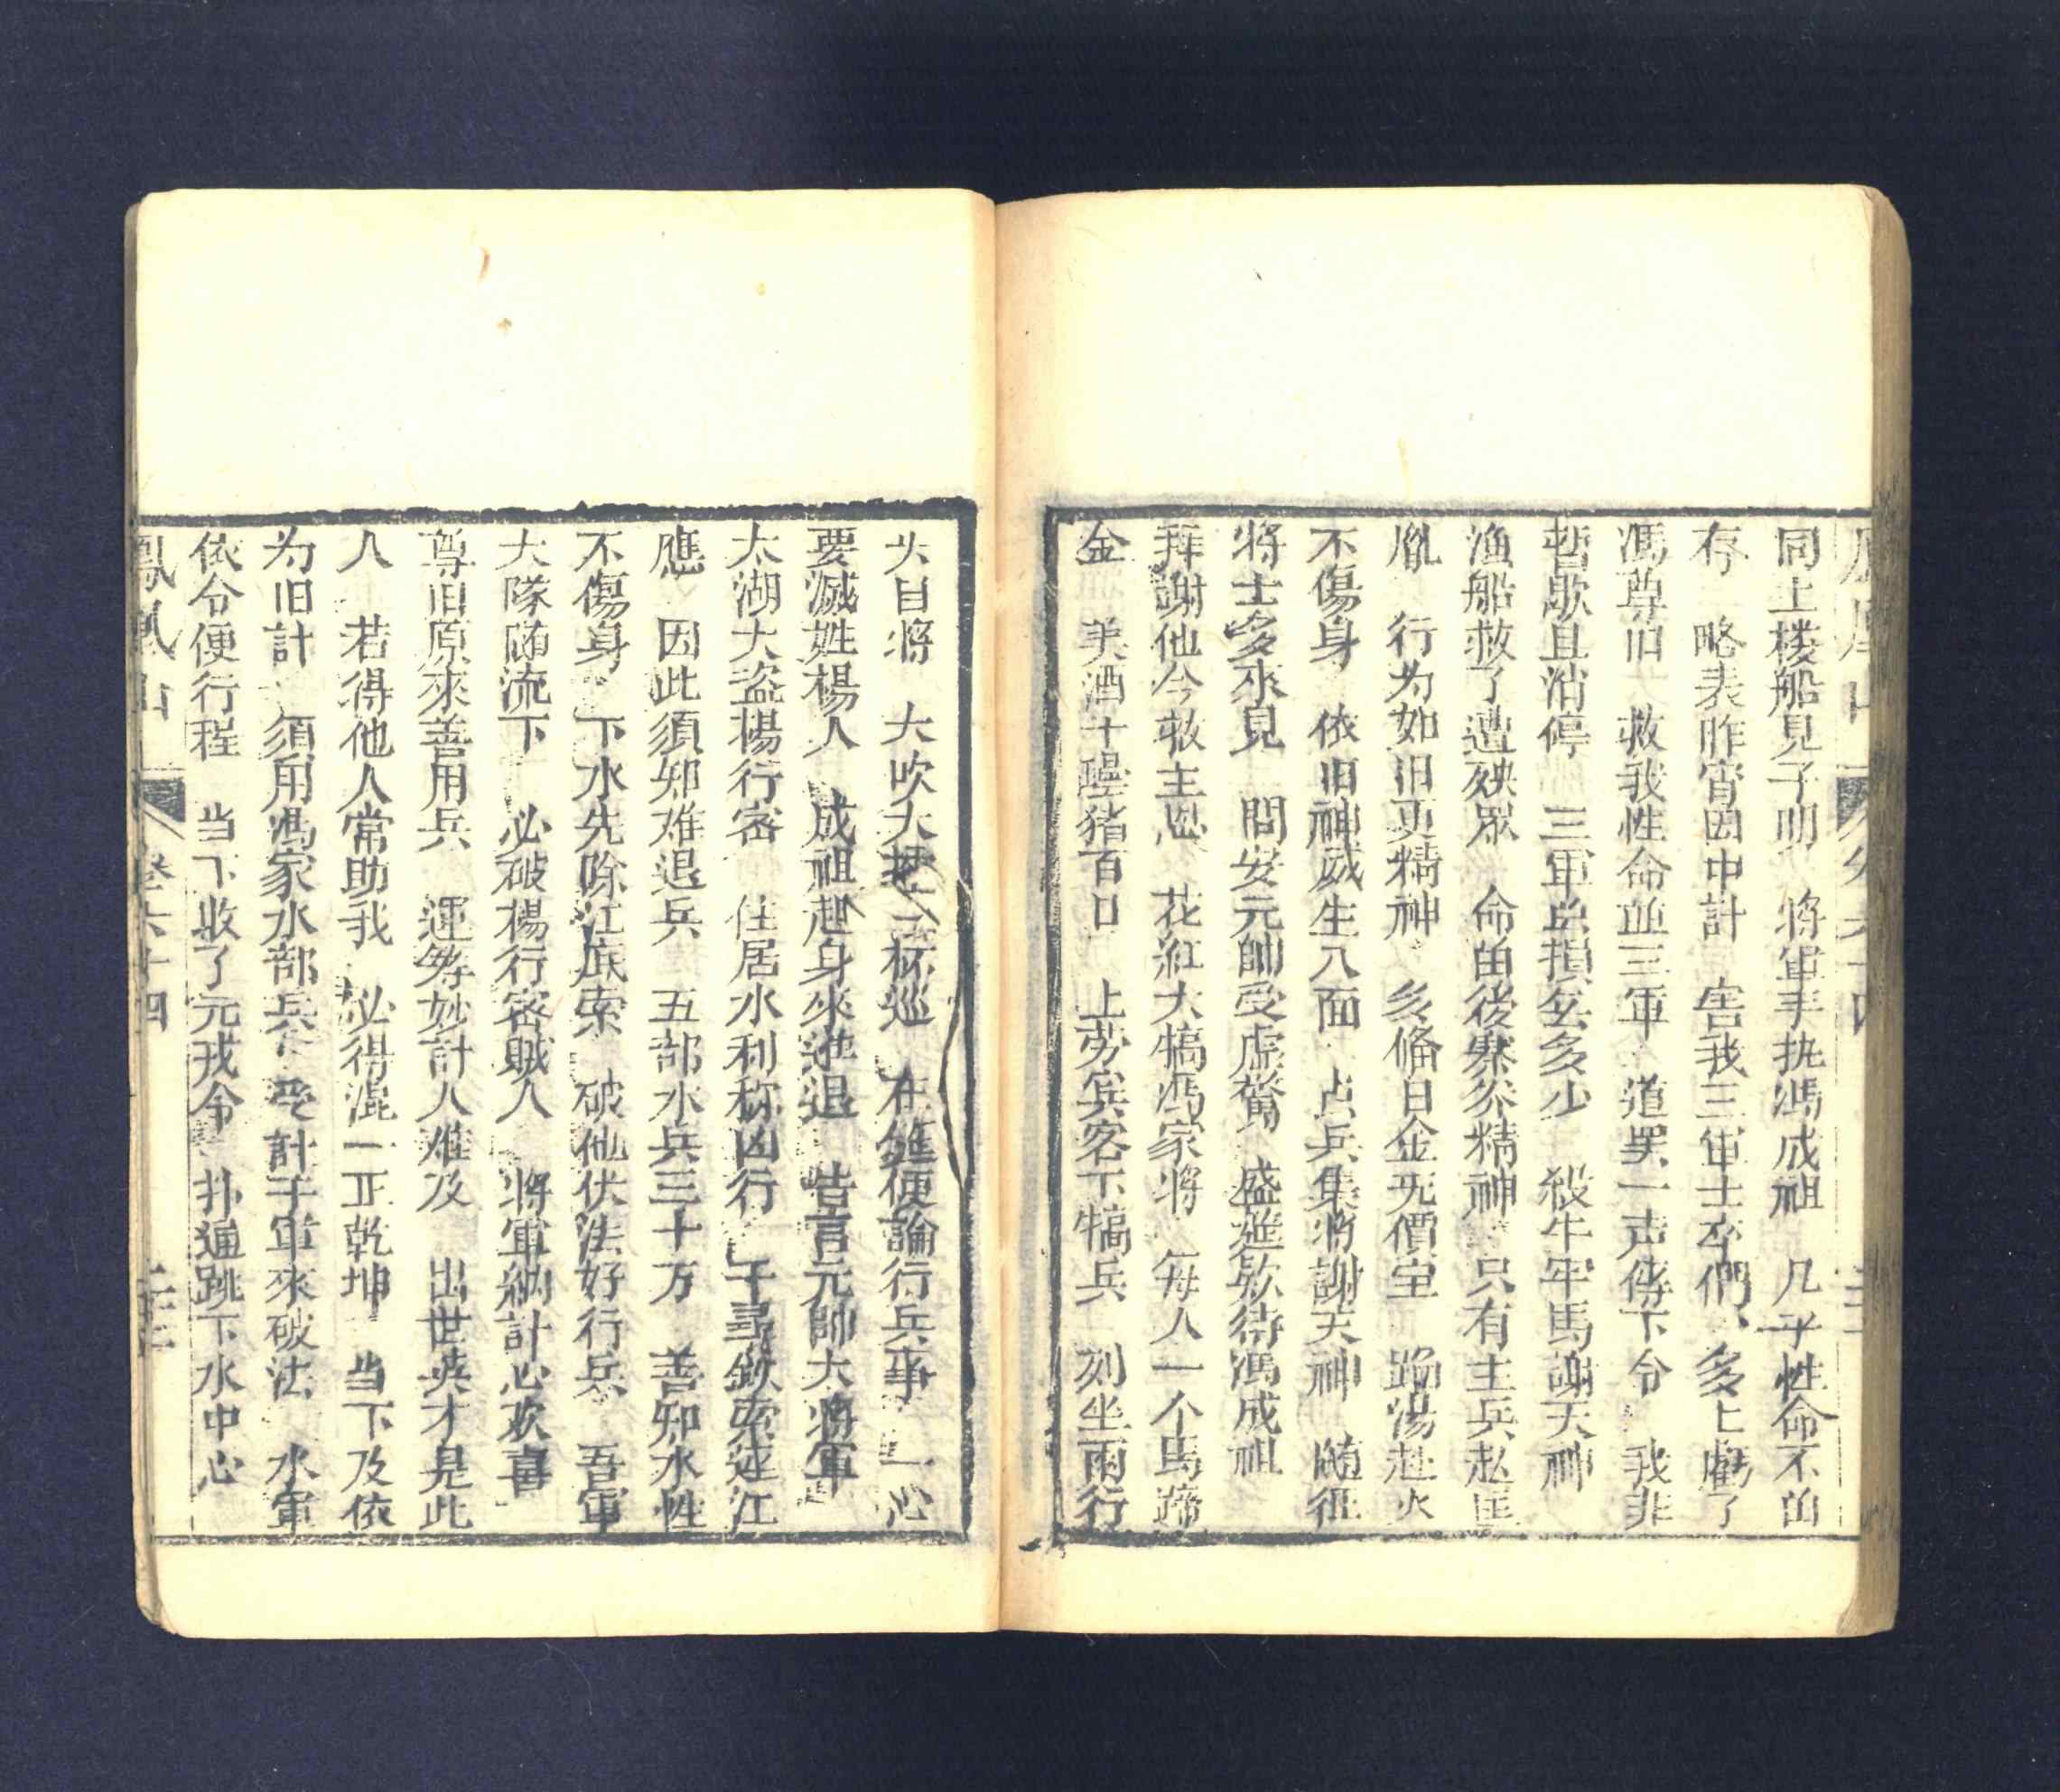 同上楼船見子明 將軍手执馮成祖 几乎性命不由
存 略表昨宵因中計 害我三軍士卒們 多上虧了
馮尊旧 救我性命並三軍 道罢一声傳下令 我非
暫歇且消停 三軍点損多少 殺牛牢馬謝天神
渔船救了遭殃眾 命由後寨养精神 只有主兵赵匡
胤 行为如旧更精神 多俻日金无價宝 蹈湯赴火
不傷身 依旧神威生八面 点兵集將謝天神 随征
將士多來見 問安元帥受虛驚 盛筵欵待馮成祖
拜謝他今救主恩 花紅大犒馮家將 每人一个馬蹄
金 美酒十罎猪百口 上劳宾客下犒兵 刻坐兩行
大目將 大吹大擂三杯巡 在筵便論行兵事 一心
要滅姓楊人 成祖起身來進退 告言元帥大將軍
太湖大盗楊行密 住居水利称凶行 千尋鉄索連江
應 因此須知难退兵 五部水兵三十万 善知水性
不傷身 下水先除江底索 破他伏法好行兵 吾軍
大隊随流下 必破楊行密賊人 將軍納計心欢喜
尊旧原來善用兵 運筹妙計人难及 出世英才是此
人 若得他人常助我 必得混一正乾坤 当下及依
为旧計 須用馮家水部兵 受計于軍來破法 水軍
依令便行程 当下收了元戎令 扑通跳下水中心
鳳凰山 卷六十四